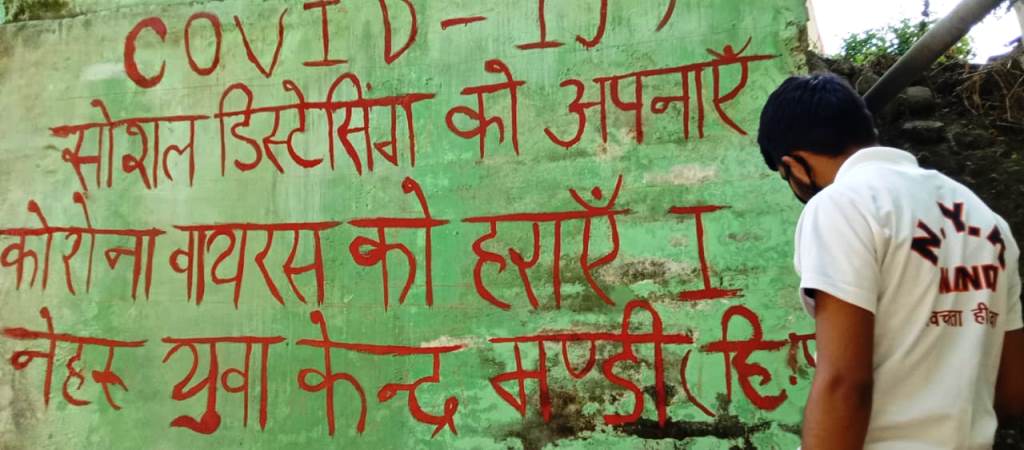 COVID-19
सोशल डिस्टेसिंग को अपनाएँ
कोरोना वायरस को हराएँ I
नेहरू युवा केन्द्र मण्डी (हि.प
N.Y.
MANDI